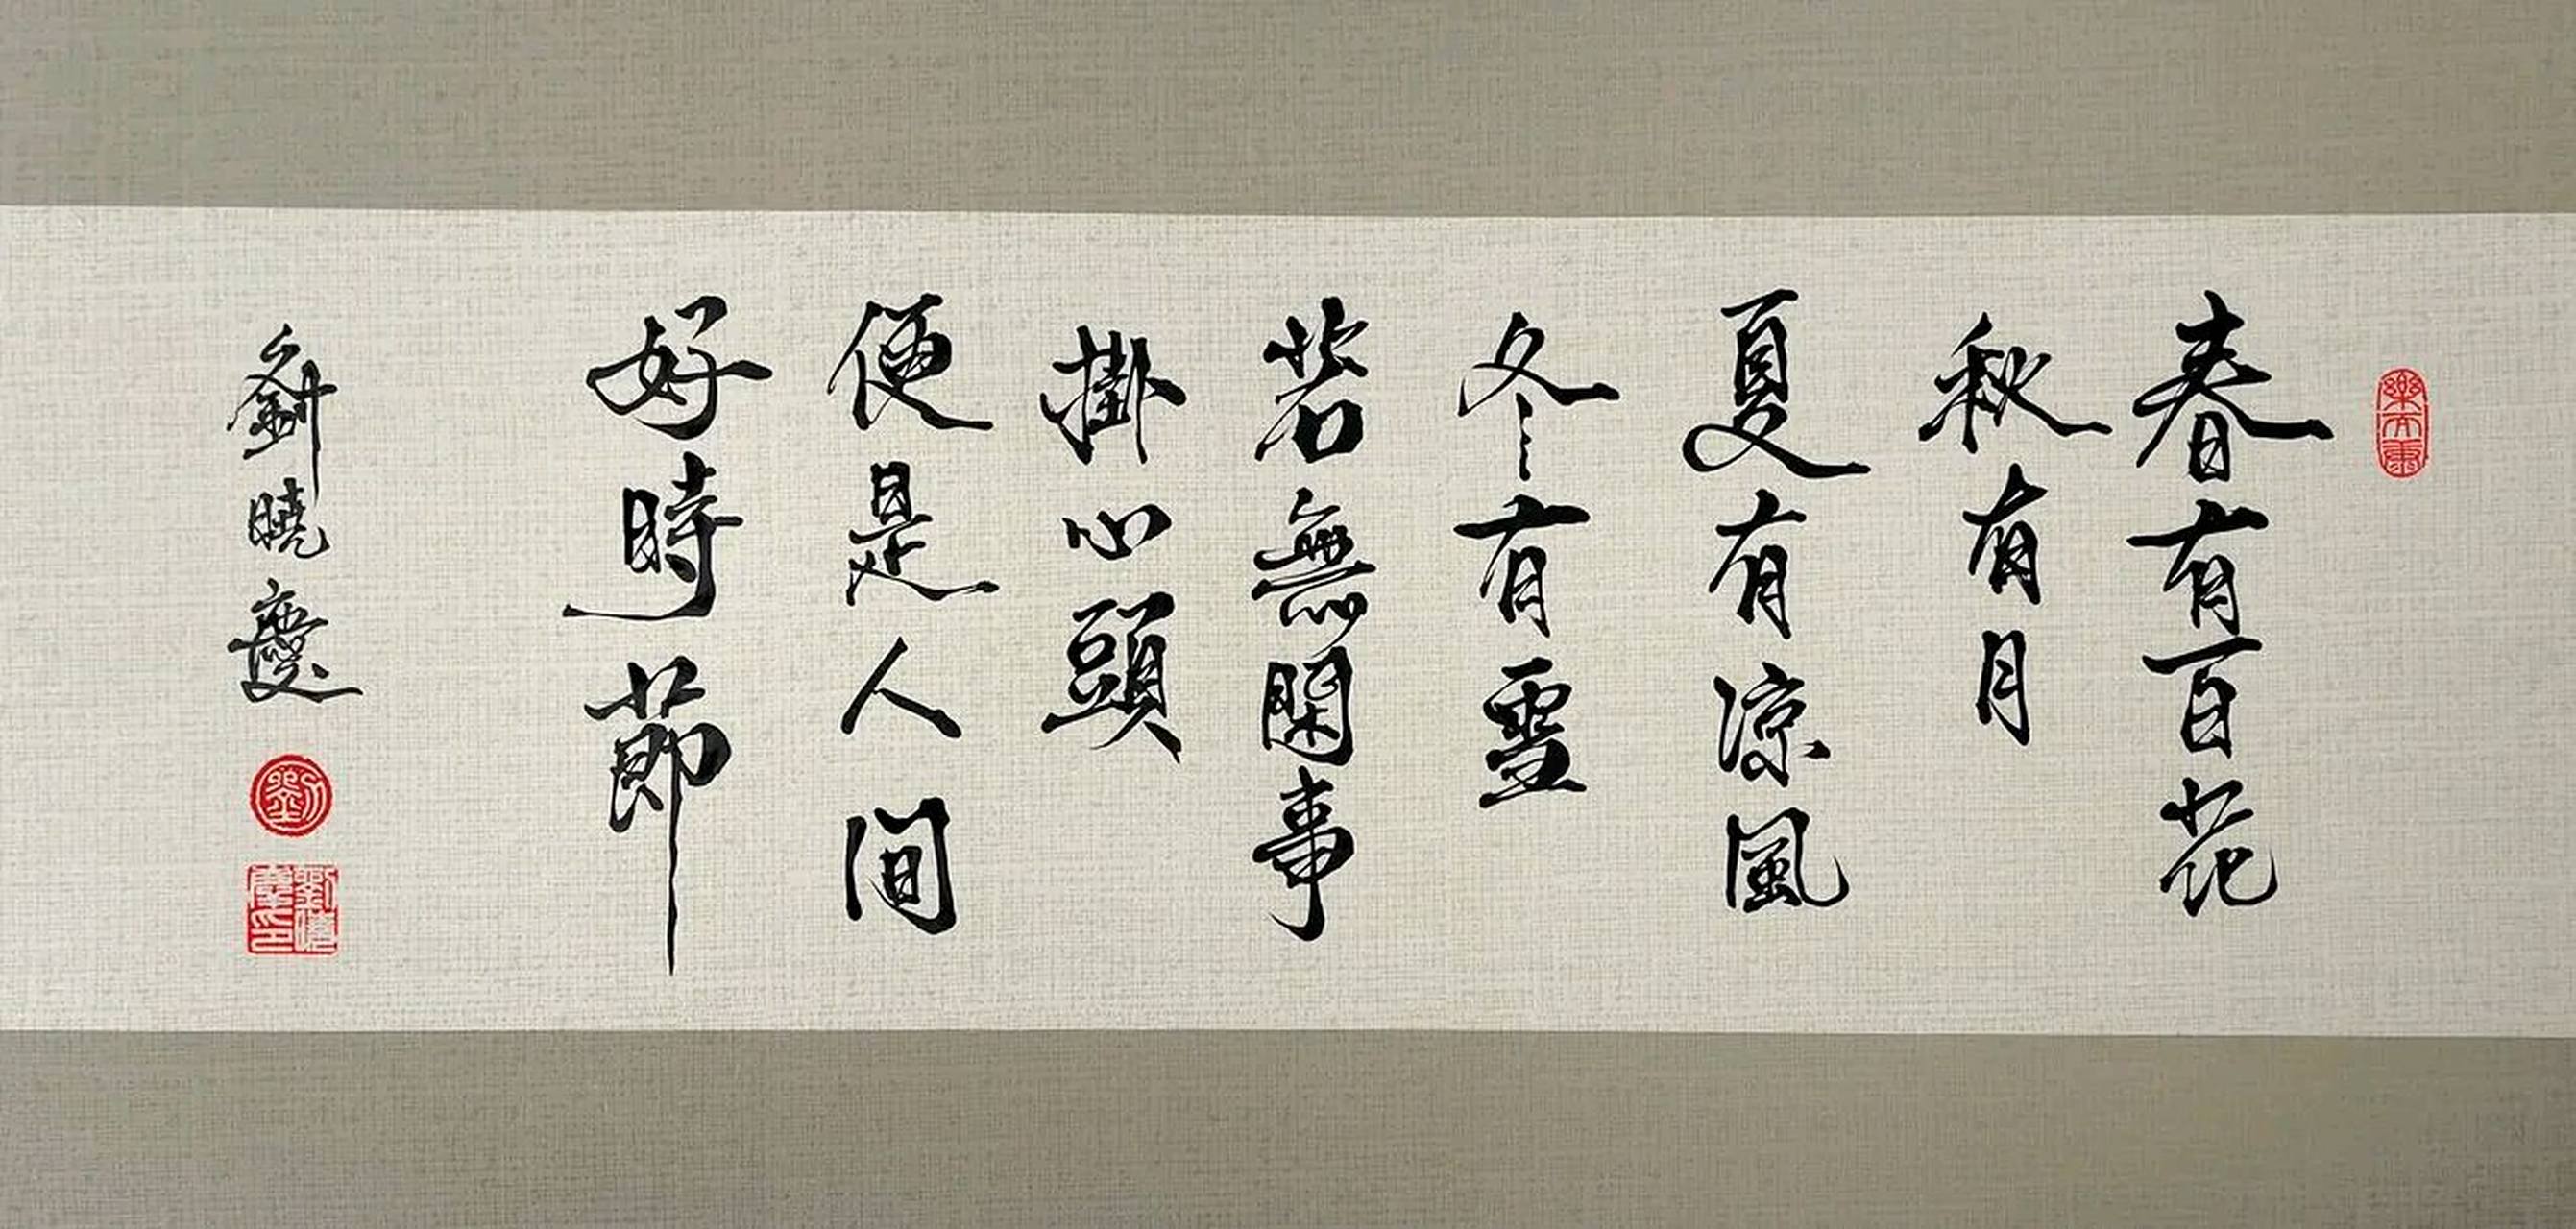 春有百花
秋有月
夏有凉風
冬有雪
若無閑事
掛心頭
便是人间
好時節
劉曉慶
劉
劉曉慶印